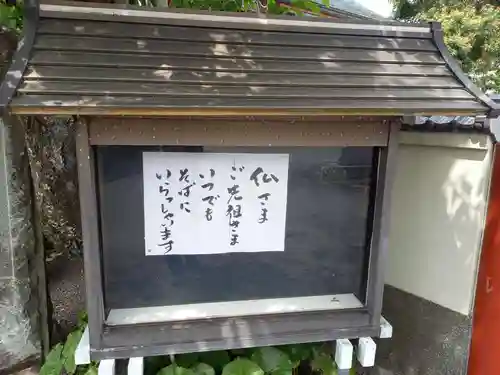 仏さま
ご先祖さま
いつでも
そばに
いらっしゃいます